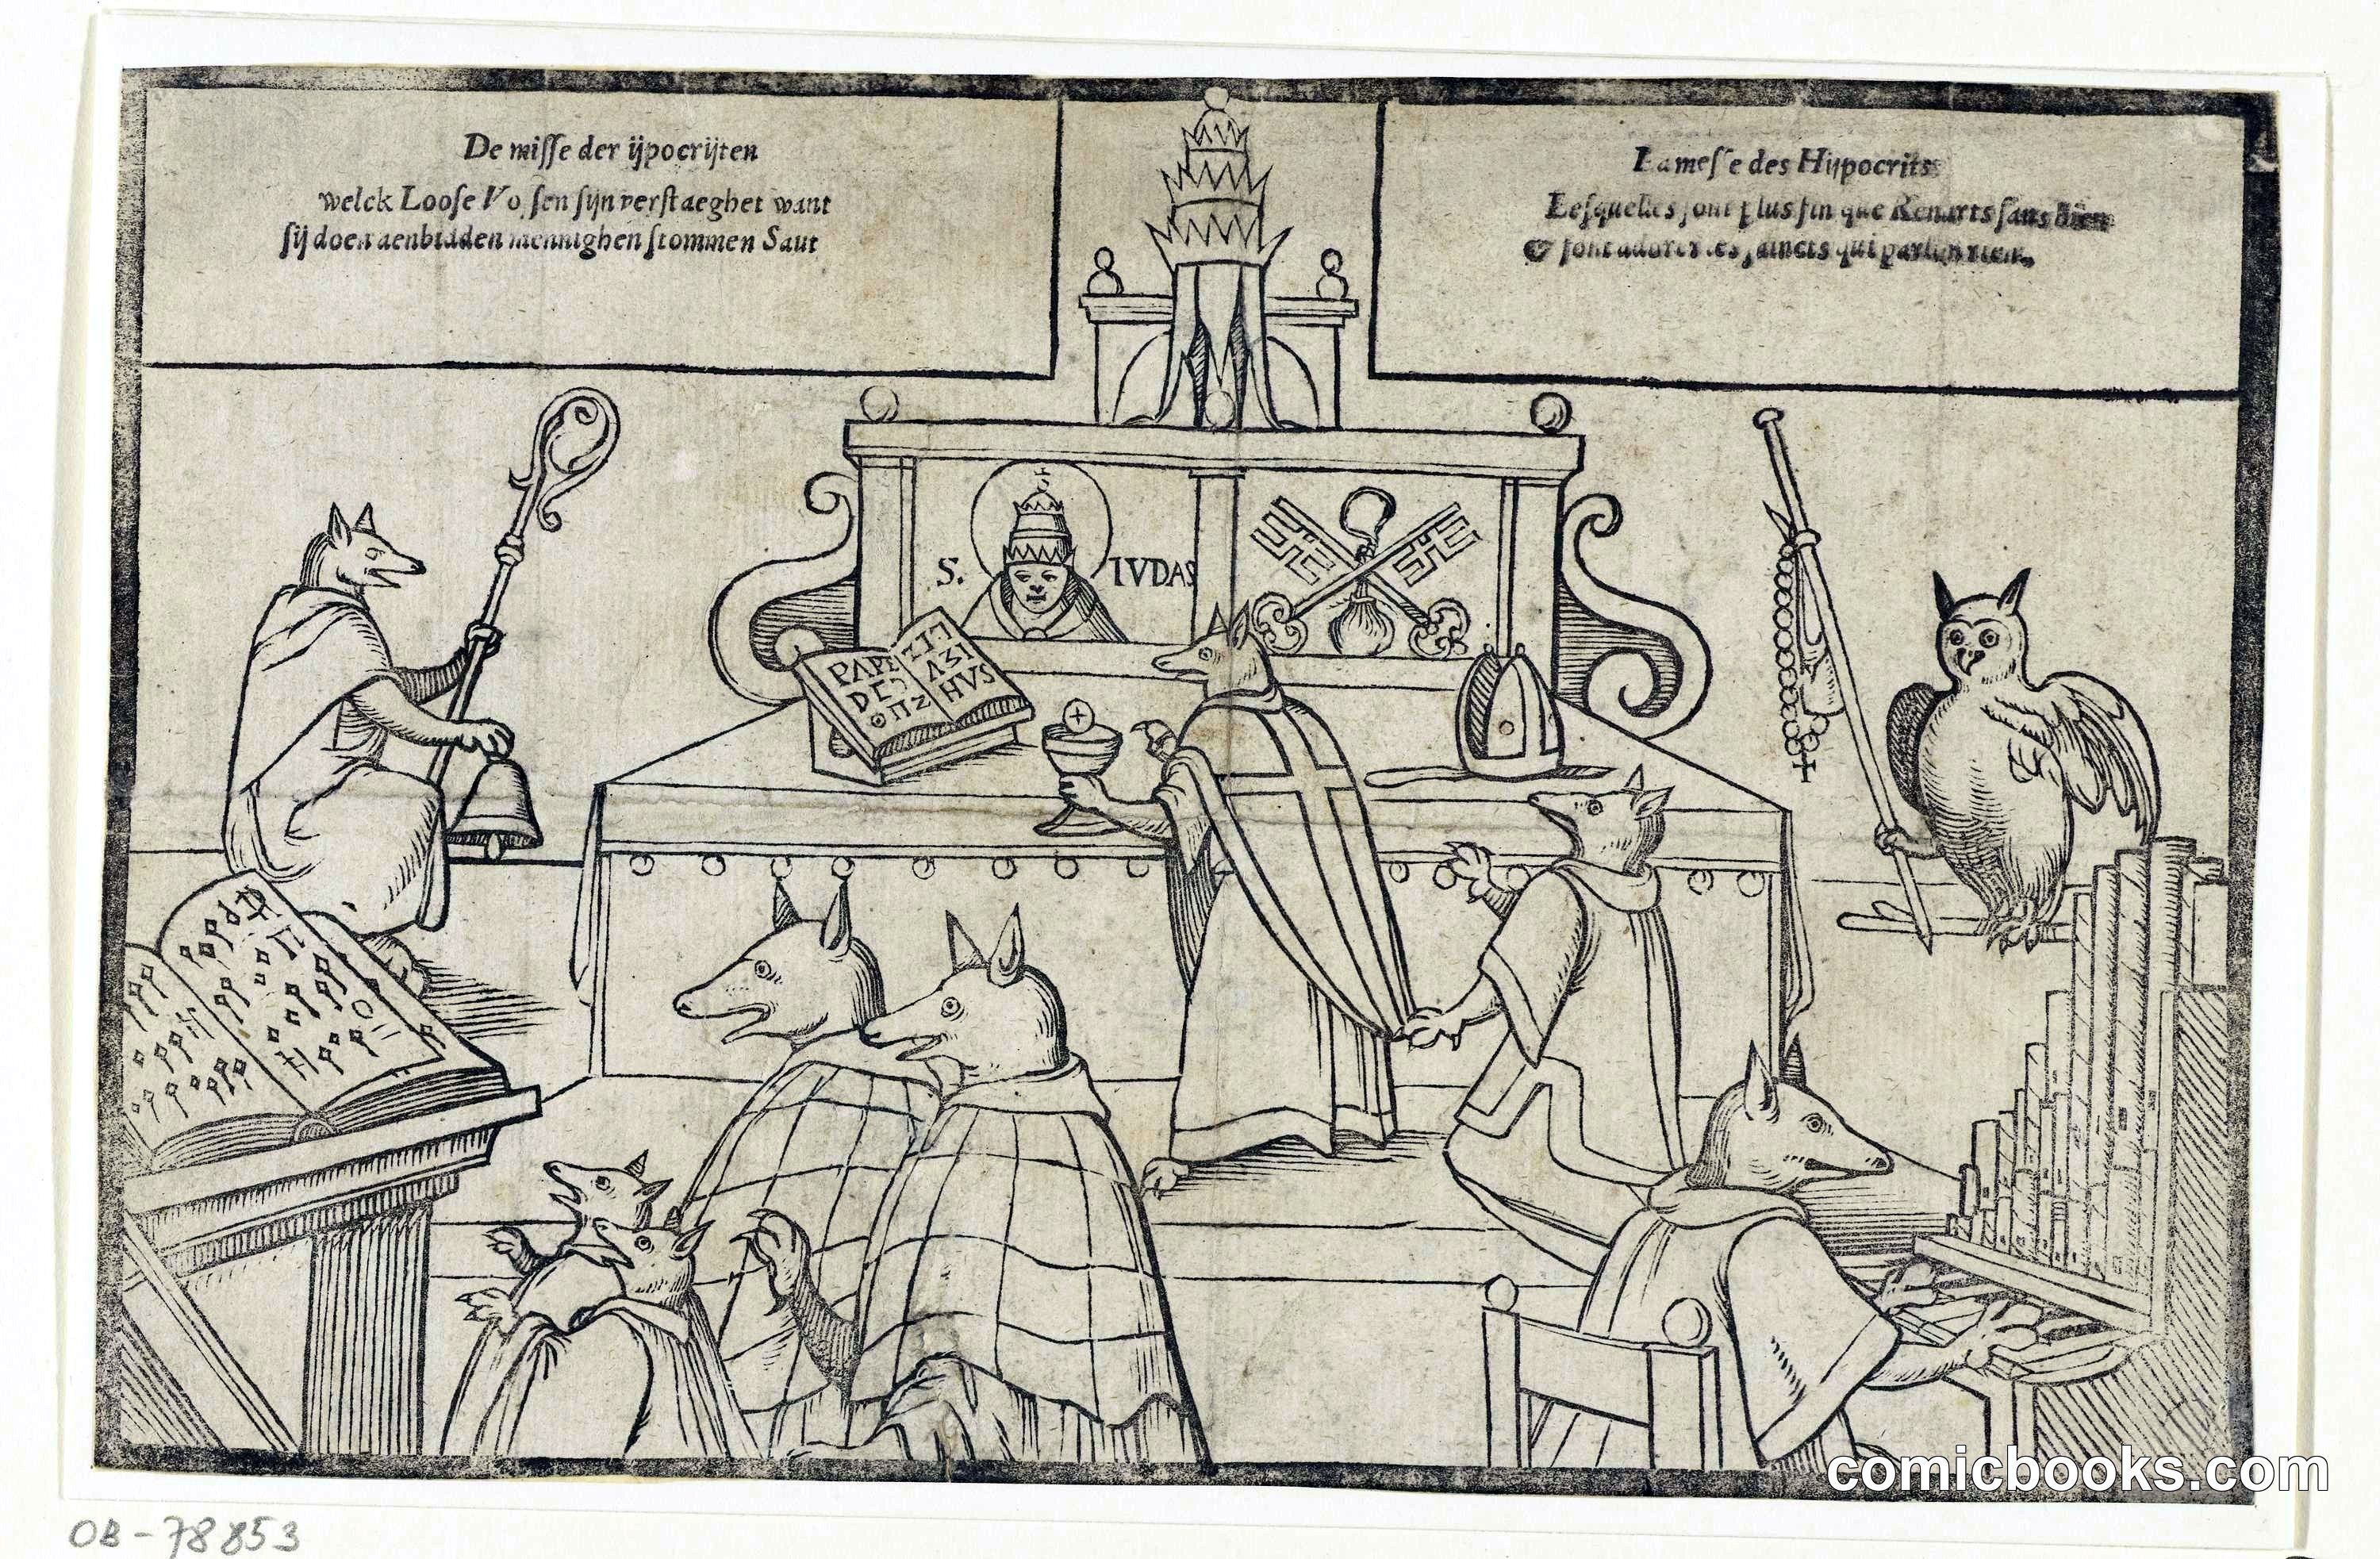 De misse der ijpocrijten
welck Loose Vossen sijn verstaeghet want
sij doen aenbidden mennighen stommen Sant
La messe des Hijpocrits
Lesquelles sont plus fin que Renarts sans bien
& font adorer les saincts qui parlent rien.
S. IVDAS
PAPE
DE
HVS
comicbooks.com
OB-78853